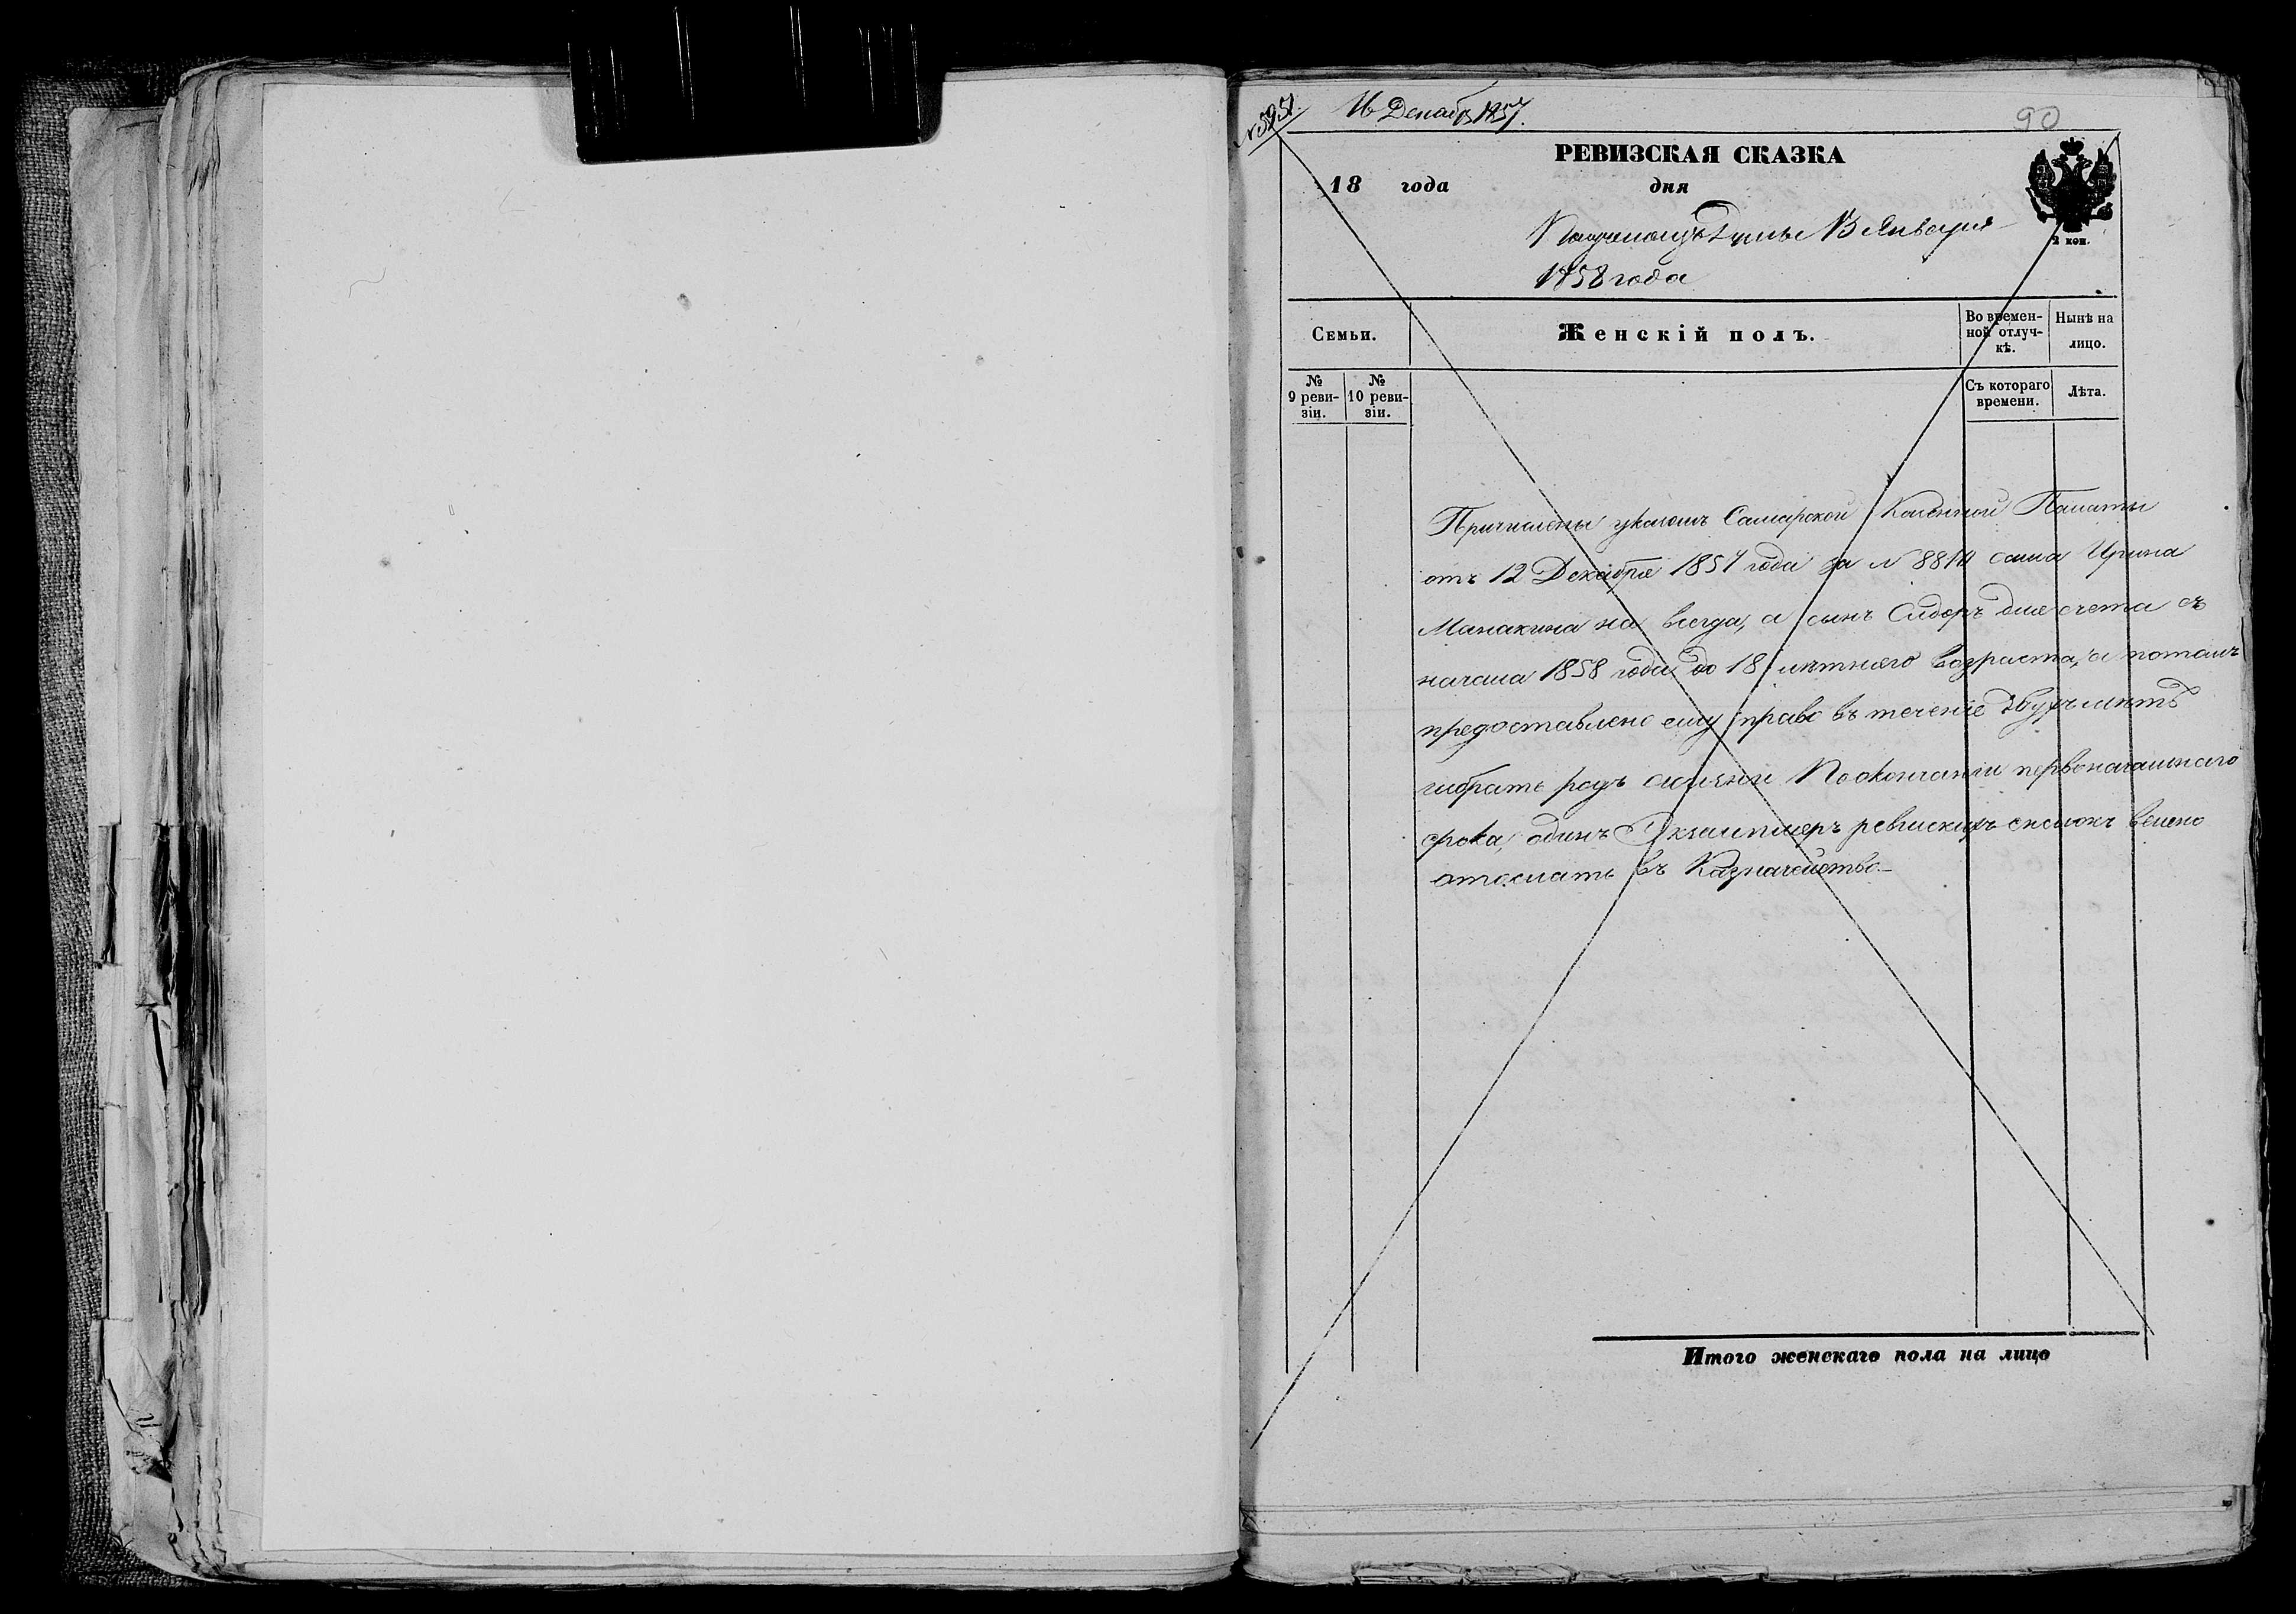 16 Декабр 1857.
90
РЕВИЗСКАЯ СКАЗКА
18 года дня
2 коп.
Января
1858 года
Семьи.
Женскій полъ.
Во времен-
ной отлуч-
кѣ.
Нынѣ на
лицо.
№
9 реви-
зіи.
№
10 реви-
зіи.
Съ котораго
времени.
Лѣта.
Причислены указомъ Самарской Казенной Палаты
отъ 12 Декабря 1857 года за № сама Ирина
Манакина на всегда, а сынъ Сидоръ для счета съ
начала 1858 года до 18 лѣтняго возраста, а потомъ
предоставлено ему право въ теченіе двухъ лѣтъ
избрать родъ жизни По окончаніи первоначальнаго
срока, одинъ Экземпляръ ревискихъ велено
отослать въ Казначейство
Итого женскаго пола на лицо